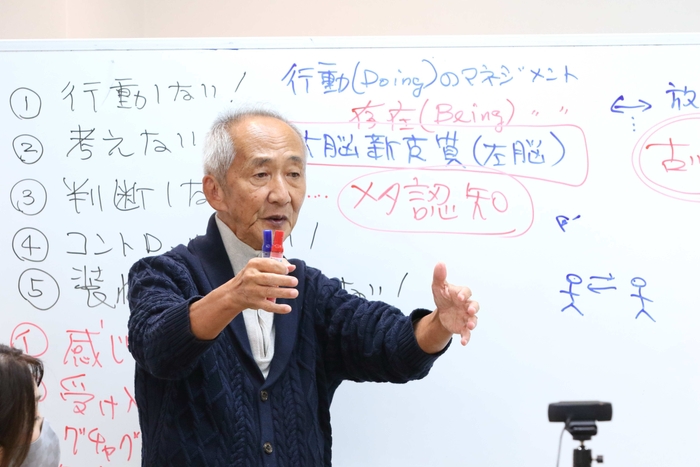 ① 行動しない!
② 考えない
③ 判断しな
④ コントロ
⑤ 装
!
① 感じ
受け入
グチャグ
行動(Doing)のマネジメント
存在(Being) 〃 〃
大脳新皮質(左脳)
メタ認知
放